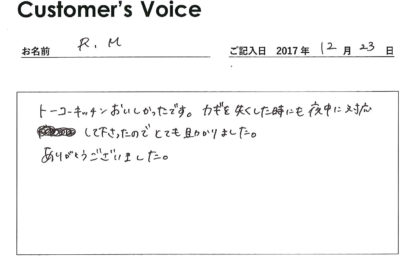 Customer's Voice
お名前 R.M ご記入日 2017年 12月 23日
トーコーキッチンおいしかったです。カギを失くした時にも夜中に対応
して下さったのでとても助かりました。
ありがとうございました。